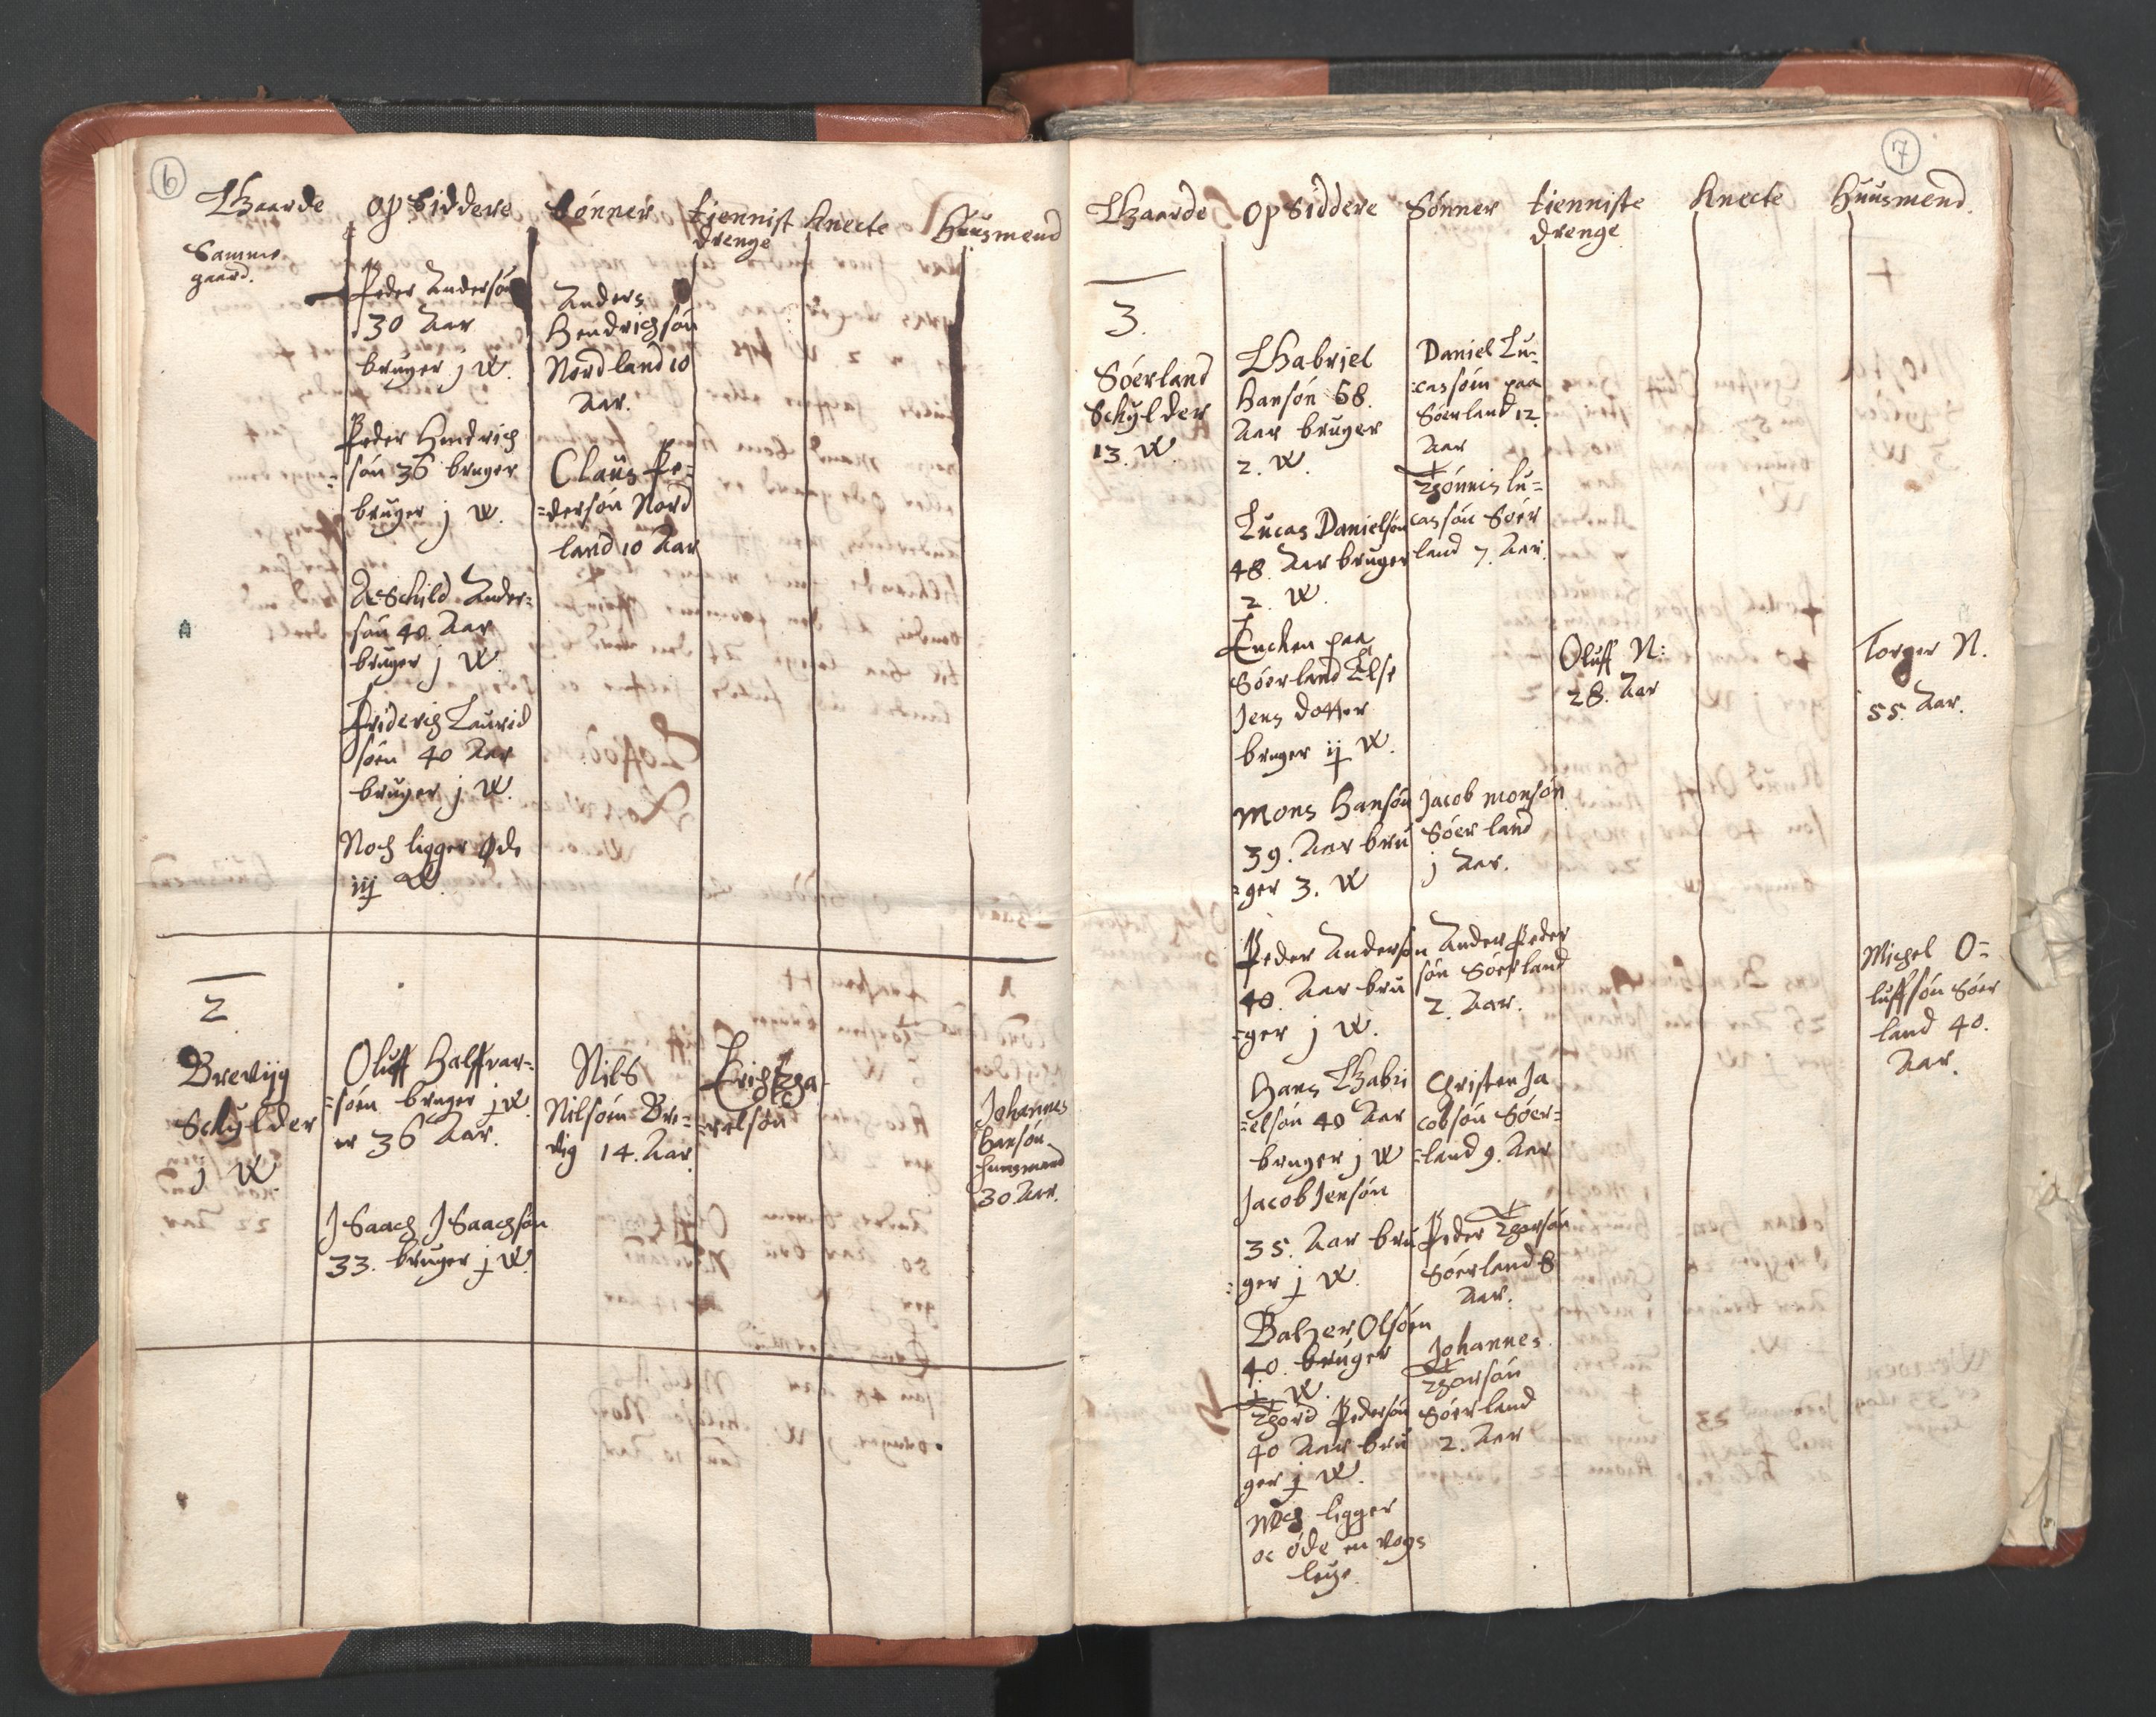 6
Ghaarde
Opsiddere
Sønner
tiennist
drenge
Knecte
Huusmend
Samme
gaard.
Peder Andersøn
30 Aar
bruger j W.
Peder Hendrich
=søn 36 bruger
bruger j W.
Aschild Ander=
søn 40. Aar
bruger j W.
Friderich Laurid
søen 40 Aar
bruger j W.
Noch ligger Øde
iij W.
Anders
Hendrichsøn
Nordland 10
Aar.
Claus Pe=
=dersøn Nord
land 10 Aar
2.
Brevijg
Schylder
j W.
Oluff Halffvar=
=søen bruger j W
er 36 Aar.
JSaach JSaachsøn
33. bruger j W.
Nils
Nilsøin Bre=
vig 14. Aar
Erich
=relsøn
Johannes
Hansøn
huusmand
30 Aar.
7
Ghaarde
Opsiddere
Sønner
tienniste
drenge
Knecte
Huusmend.
3.
Søerland
Schylder
13. W.
Ghabriel
Hansøn 68.
Aar bruger
2. W.
Lucas Danielsøn
48. Aar bruger
2. W.
Encken paa
Søerland Else
Jens dotter
bruger ij W.
Mons Hansøn
39. Aar bru
=ger 3. W
Peder Andersøn
40. Aar bru
=ger j W.
Hans Ghabri
=elsøn 40 Aar
bruger j W
Jacob Jensøn
35. Aar bru
=ger j W.
Balzer Olsøen
40. bruger
j W.
Thord Pedersøn
40 Aar bru
ger j W.
Noch ligger
oc øde en vogs
leye.
Daniel Lu=
=cassøin paa
Søerland 12.
Aar
Thønnis lu=
cassøn Søer
land 7. Aar.
Jacob Monsøn
Søerland
j Aar.
Ander Peder
søn Søerland
2. Aar.
Christen Ja
cobsøn Søer=
=land 9. Aar
Peder Thorsøn
Søerland 8
Aar.
Johannes
Thorsøn
Søerland
2. Aar
Oluff N:
28. Aar
Torger N.
55. Aar.
Michel O=
luffsøn Søer
land 40.
Aar.